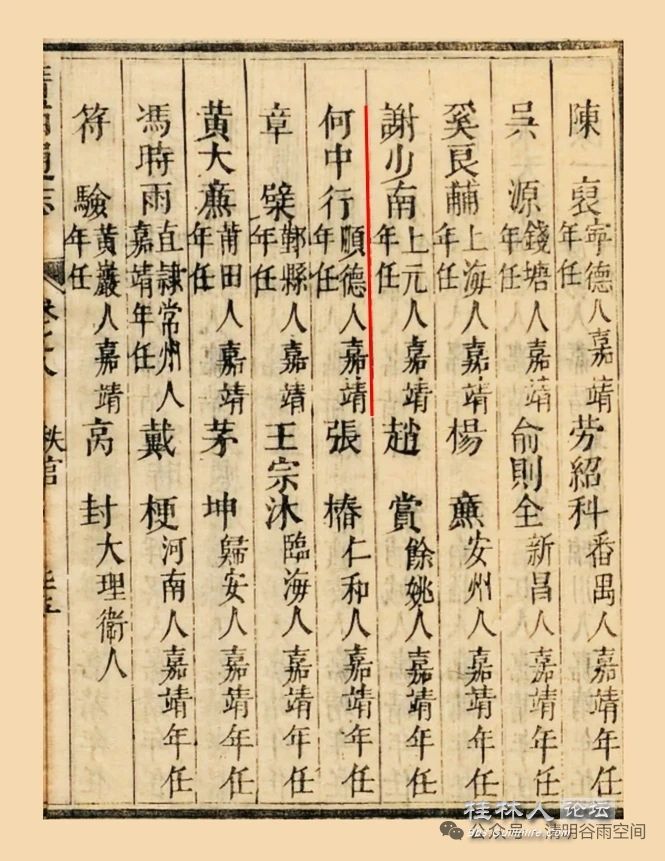 陳裒寧德人嘉靖年任 勞紹科番禺人嘉靖年任
吳源錢塘人嘉靖年任 俞則全新昌人嘉靖年任
奚良輔上海人嘉靖年任 楊薰安州人嘉靖年任
謝少南上元人嘉靖年任 趙賞餘姚人嘉靖年任
何中行順德人嘉靖年任 張椿仁和人嘉靖年任
章檗鄞縣人嘉靖年任 王宗沐臨海人嘉靖年任
黃大廉莆田人嘉靖年任 茅坤歸安人嘉靖年任
馮時雨直隷常州人嘉靖年任 戴梗河南人嘉靖年任
符驗黃巖人嘉靖年任 高封大理衛人
通志 卷之八 秩官
桂林人论坛
公众号·清明谷雨空间